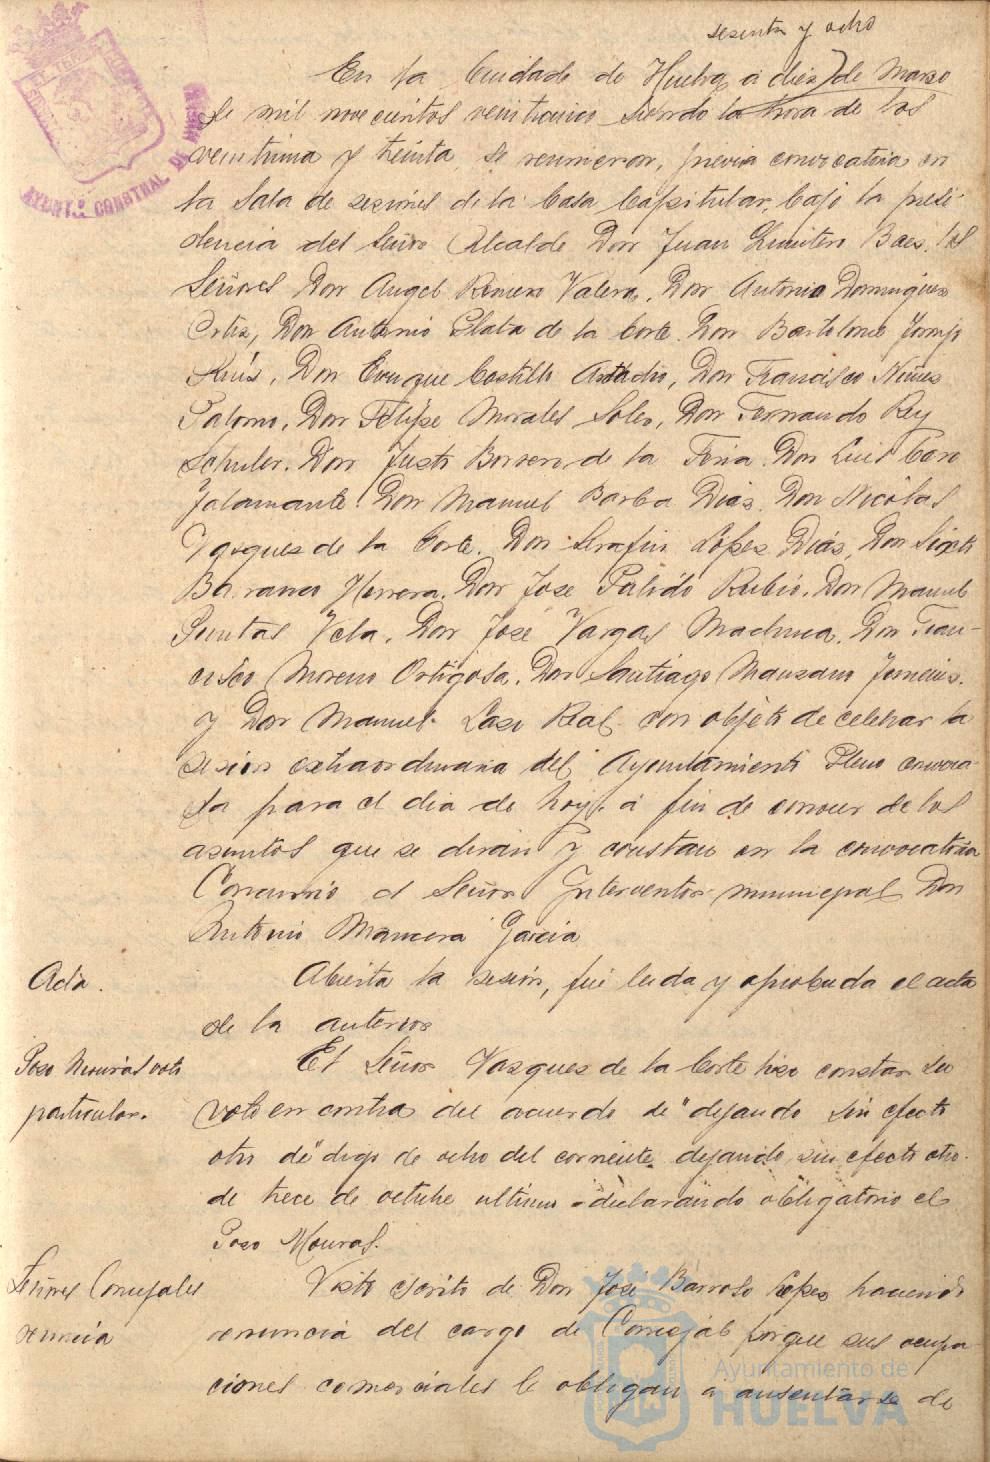 sesenta y ocho
En la Ciudad de Huelva a diez de Marzo
de mil novecientos veinticinco siendo la hora de las
veintiuna y treinta, se reunieron, previa convocatoria en
la Sala de sesiones de la Casa Capitular, bajo la presi-
dencia del Señor Alcalde Don Juan Quintero Baez, los
Señores Don Angel Romero Valera, Don Antonio Dominguez
Ortiz, Don Antonio Plata de la Corte, Don Bartolomé
Ruiz, Don Enrique Castillo Don Francisco Nuñez
Palomo, Don Felipe Morales Don Fernando Rey
Schuler, Don Justo Borrero de la Feria, Don Luis Caro
Don Manuel Barba Diaz, Don Nicolas
Vazquez de la Corte, Don Serafin Lopez Diaz, Don Sixto
Barranco Herrera, Don Jose Pulido Rubio, Don Manuel
Puntas Vela, Don José Vargas Machuca, Don Fran-
cisco Moreno Ortigosa, Don Santiago Manzano
y Don Manuel Lazo Real con objeto de celebrar la
sesion extraordinaria del Ayuntamiento Pleno convoca-
da para el dia de hoy, a fin de conocer de los
asuntos que se diran y constan en la convocatoria
Concurrió el Señor Interventor municipal Don
Antonio Mancera Garcia
Acta.
Abierta la sesión, fué leida y aprobada el acta
de la anterior
Pozo Mouras voto
particular.
El Señor Vazquez de la Corte hizo constar su
voto en contra del acuerdo de "dejando sin efecto
otro de" digo de ocho del corriente dejando sin efecto otro
de trece de octubre ultimo declarando obligatorio el
Pozo Mouras.
Señores Concejales
renuncia
Visto escrito de Don José Barroso Lopez haciendo
renuncia del cargo de Concejal porque sus ocupa
ciones comerciales le obligan a ausentarse de
AYUNT.º CONSTNAL DE HUELVA
Ayuntamiento de
HUELVA